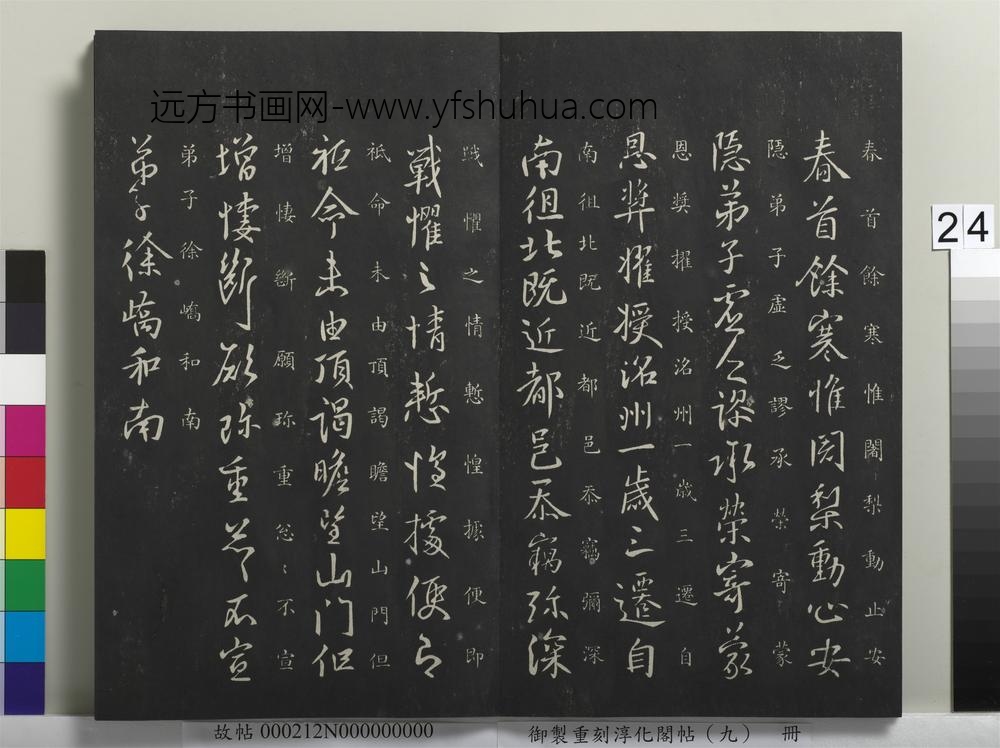 远方书画网-www.yfshuhua.com
春首餘寒惟闍梨動止安
春首餘寒惟闍梨動止安
隱弟子虛乏謬承榮寄蒙
隱弟子虛乏謬承榮寄蒙
恩奬擢授洺州一歲三遷自
恩奬擢授洺州一歲三遷自
南徂北既近都邑忝竊彌深
南徂北既近都邑忝竊弥深
戰懼之情慙惶據便即
戰懼之情慙惶據便即
祗命未由頂謁瞻望山門但
祗命未由頂謁瞻望山門但
增悽斷願珎重怱〻不宣
增悽斷願珎重怱〻不宣
弟子徐嶠和南
弟子徐嶠和南
24
故帖 000212N000000000
御製重刻淳化閣帖（九） 冊